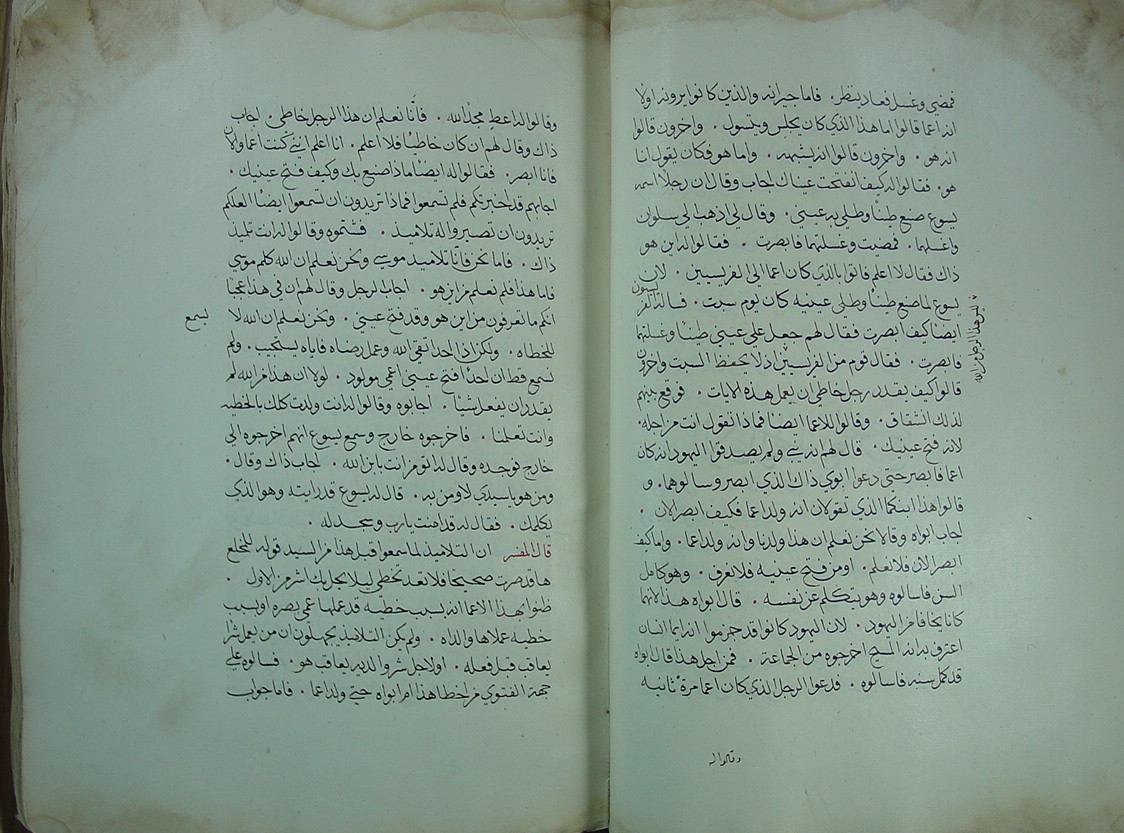 فمضى وغسل فعاد ينظر. فاما جيرانه والذين كانوا يرونه اولا
انه اعما قالوا اما هذا الذي كان يجلس ويتسول. واخرون قالوا
انه هو. واخرون قالوا انه يشبهه. واما هو فكان يقول انا
هو. فقالوا له كيف انفتحت عيناك اجاب وقال ان رجلا اسمه
يسوع صنع طينا وطلى به عيني. وقال لي اذهب الى سلوان
واغسلهما. فمضيت وغسلتهما فابصرت. فقالوا له اين هو
ذاك فقال لا اعلم فاتوا بالذي كان اعما الى الفريسيين. لان
يسوع لما صنع طينا وطلى عينيه كان يوم سبت. فسالته الفريسيون
ايضا كيف ابصرت فقال لهم جعل على عيني طينا وغسلتهما
فابصرت. فقال قوم من الفريسيين اذ لا يحفظ السبت واخرون
ليس هذا الرجل من الله
قالوا كيف يقدر رجل خاطي ان يعمل هذه الايات. فوقع بينهم
لذلك انشقاق. وقالوا للاعما ايضا فماذا تقول انت من اجله.
لانه فتح عينيك. قال لهم انه نبي ولم يصدقوا اليهود انه كان
اعما فابصر حتى دعوا ابوي ذاك الذي ابصر وسالوهما. و
قالوا هذا ابنكما الذي تقولان انه ولد اعما فكيف ابصر الان.
اجاب ابواه وقالا نحن نعلم ان هذا ولدنا وانه ولد اعما. واما كيف
ابصر الان فلا نعلم. او من فتح عينيه فلا نعرف. وهو كامل
السن فاسالوه وهو يتكلم عن نفسه. قال ابواه هذا لانهما
كانا يخافا من اليهود. لان اليهود كانوا قد جزموا انه ايما انسان
اعترف به انه المسيح اخرجوه من الجماعة. فمن اجل هذا قال ابواه
قد كمل سنه فاسالوه. فدعوا الرجل الذي كان اعما مرة ثانية
وقالوا له
وقالوا له اعط مجدا لله. فانّا نعلم ان هذا الرجل خاطي. اجاب
ذاك وقال لهم ان كان خاطيا فلا اعلم. انا اعلم انني كنت اعما والان
فانا ابصر. فقالوا له ايضا ماذا صنع بك وكيف فتح عينيك.
اجابهم قد اخبرتكم فلم تسمعوا فماذا تريدون ان تسمعوا ايضا العلكم
تريدون ان تصيروا له تلاميذ. فشتموه وقالوا له انت تلميذ
ذاك. فاما نحن فانّا تلاميذ موسى ونحن نعلم ان الله كلم موسى
فاما هذا فلم نعلم من اين هو. اجاب الرجل وقال لهم ان في هذا عجبا
انكم ما تعرفون من اين هو وقد فتح عيني. ونحن نعلم ان الله لا يسمع
للخطاه. ولكن اذا احد اتقى الله وعمل رضاه فاياه يستجيب. ولم
نسمع قط ان احدا فتح عيني اعمى مولود. لولا ان هذا من الله لم
يقدر ان يفعل شيا. اجابوه وقالوا له انت ولدت كلك بالخطيه
وانت تعلمنا. فاخرجوه خارج وسمع يسوع انهم اخرجوه الى
خارج فوجده وقال له اتومن انت بابن الله. اجاب ذاك وقال.
ومن هو ياسيدي لاومن به. قال له يسوع قد رايته وهو الذي
يكلمك. فقال له قد امنت يارب وسجد له.
قال المفسر ان التلاميذ لما سمعوا قبل هذا من السيد قوله للمخلع
ها قد صرت صحيحا فلا تعد تخطي ليلا يحل بك اشر من الاول.
ظنوا بهذا الاعما انه بسبب خطيه قد عملها عمي بصره او بسبب
خطيه عملاها والداه. ولم يكن التلاميذ يجهلون ان من يعمل شرا
يعاقب قبل فعله. او لاجل شر والديه يعاقب هو. فسالوه على
جهة الفتوي من اخطا هذا ام ابواه حتى ولد اعما. فاما جواب